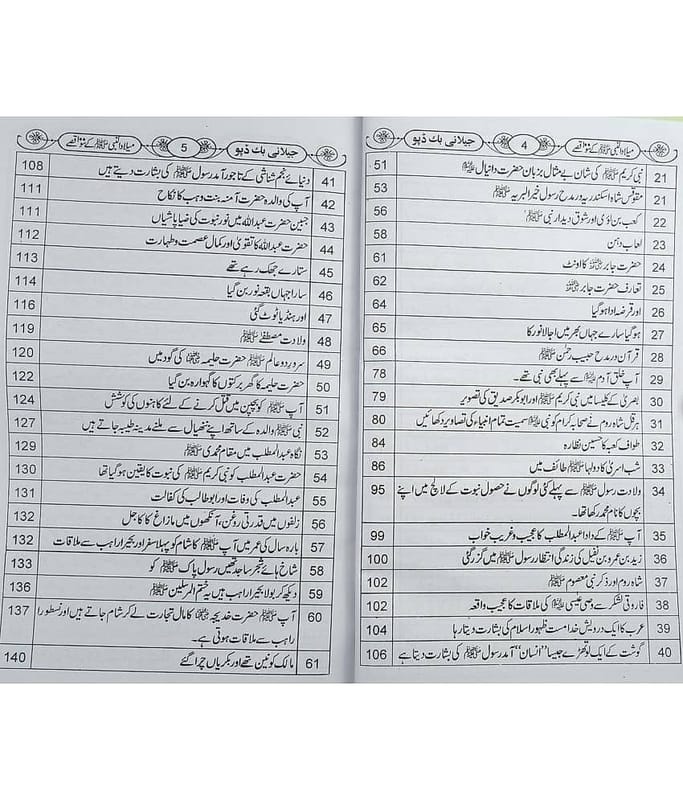 میلاد النبی ﷺ کے سو واقعے 4 جیلانی بک ڈپو
21 نبی کریم ﷺ کی شان بے مثال بزبان حضرت دانیال 51
21 مقوقس شاہ اسکندریہ در مدح رسول خیر البریہ ﷺ 53
22 کعب بن لوی اور شوق دیدار نبی ﷺ 56
23 لعاب دہن 58
24 حضرت جابر کا اونٹ 61
25 تعارف حضرت جابر 62
26 اور قرضہ ادا ہو گیا 64
27 ہو گیا سارے جہاں بھر میں اجالا نور کا 65
28 قرآن در مدح حبیب رحمٰن ﷺ 66
29 آپ خلق آدم سے پہلے بھی نبی تھے۔ 78
30 بصریٰ کے کلیسا میں نبی کریم ﷺ اور ابو بکر صدیق کی تصویر 79
31 ہرقل شاہ روم نے صحابہ کرام کو نبی سمیت تمام انبیاء کی تصاویر دکھائیں 80
32 طواف کعبہ کا حسین نظارہ 84
33 شب اسریٰ کا دولہا ﷺ طائف میں 86
34 ولادت رسول ﷺ سے پہلے کئی لوگوں نے حصول نبوت کے لالچ میں اپنے 95
بچوں کا نام محمد رکھا تھا۔
35 آپ ﷺ کے دادا عبدالمطلب کا عجیب و غریب خواب 99
36 زید بن عمرو بن نفیل کی زندگی انتظار رسول ﷺ میں گزر گئی 100
37 شاہ روم اور ذکر نبی معصوم ﷺ 102
38 فاروقی لشکر سے وصی عیسیٰ کی ملاقات کا عجیب واقعہ 102
39 عرب کا ایک درویش خدا مست ظہور اسلام کی بشارت دیتا رہا 104
40 گوشت کے ایک لوتھڑے جیسا "انسان" آمد رسول ﷺ کی بشارت دیتا ہے 106
میلاد النبی ﷺ کے سو واقعے 5 جیلانی بک ڈپو
41 دنیائے نجم شناسی کے تاجور آمد رسول ﷺ کی بشارت دیتے ہیں 108
42 آپ کی والدہ حضرت آمنہ بنت وہب کا نکاح 111
43 جبین حضرت عبداللہ میں نور نبوت کی ضیا پاشیاں 111
44 حضرت عبداللہ کا تقویٰ اور کمال عصمت و طہارت 112
45 ستارے جھک رہے تھے 113
46 سارا جہاں بقعہ نور بن گیا 114
47 اور ہنڈیا ٹوٹ گئی 116
48 ولادت مصطفےٰ ﷺ 119
49 سرور دو عالم ﷺ حضرت حلیمہ کی گود میں 120
50 حضرت حلیمہ کا گھر برکتوں کا گہوارہ بن گیا 122
51 آپ ﷺ کو بچپن میں قتل کرنے کے لئے کاہنوں کی کوشش 124
52 نبی ﷺ والدہ کے ساتھ اپنے ننھیال سے ملنے مدینہ طیبہ جاتے ہیں 127
53 نگاہ عبدالمطلب میں مقام محمدی ﷺ 129
54 حضرت عبدالمطلب کو نبی کریم ﷺ کی نبوت کا یقین ہو گیا تھا 130
55 عبدالمطلب کی وفات اور ابو طالب کی کفالت 131
56 زلفوں میں قدرتی روغن، آنکھوں میں مازاغ کا کاجل 132
57 بارہ سال کی عمر میں آپ ﷺ کا شام کو پہلا سفر اور بحیرا راہب سے ملاقات 132
58 شاخ ہائے شجر ساجد تھیں رسول پاک ﷺ کو 133
59 دیکھ کر بولا بحیرا راہب ہیں یہ ختم المرسلین ﷺ 136
60 آپ ﷺ حضرت خدیجہ کا مال تجارت لے کر شام جاتے ہیں اور نسطورا 137
راہب سے ملاقات ہوتی ہے۔
61 مالک کونین تھے اور بکریاں چرا گئے 140